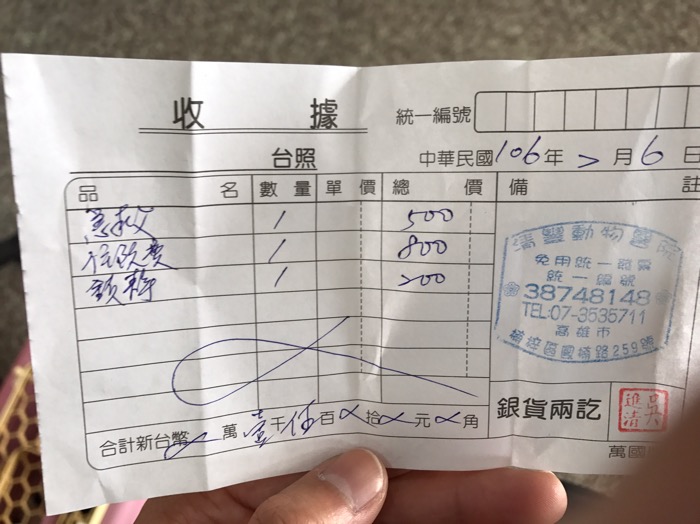 收 據
統一編號
台照
中華民國106年2月6日
品 名 數 量 單 價 總 價 備 註
急救 1 500
住院費 1 800
頭套 1 200
清豐動物醫院
免用統一發票
統一編號
38748148
TEL:07-3535711
高雄市
楠梓區國楠路259號
合計新台幣 萬壹千伍百 拾 元 角
銀貨兩訖
吳進清
萬國